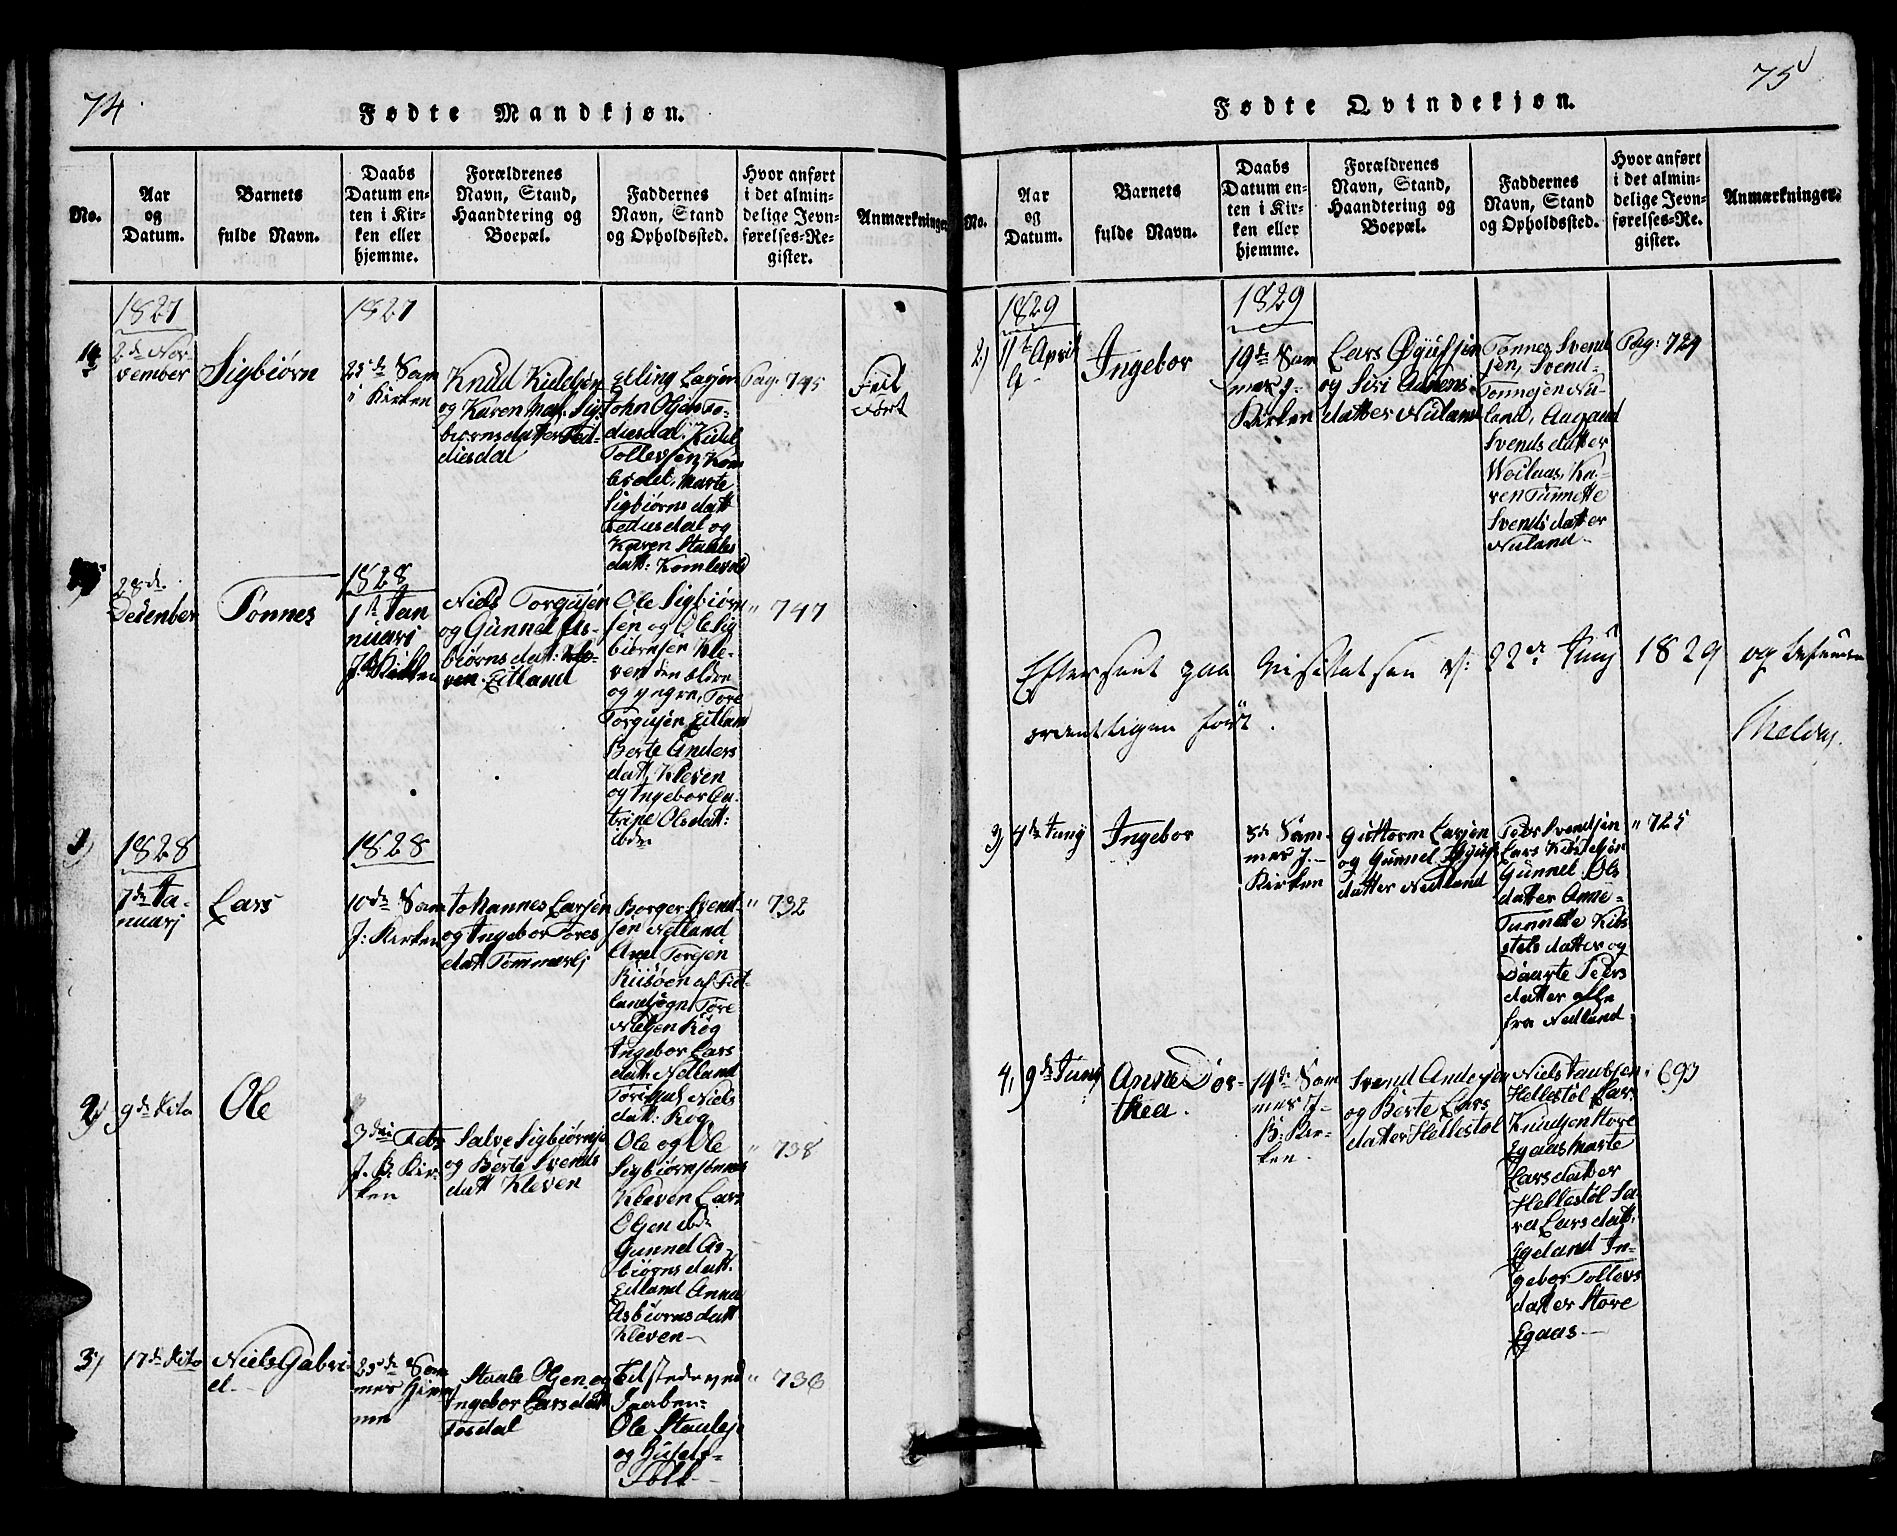 74
Fødte Mandkjøn.
No.
Aar
og
Datum.
Barnets
fulde Navn.
Daabs
Datum en-
ten i Kir-
ken eller
hjemme.
Forældrenes
Navn, Stand,
Haandtering og
Boepæl.
Faddernes
Navn, Stand
og Opholdssted.
Hvor anført
i det almin-
delige Jevn-
førelses-Re-
gister.
Anmærkninger
1827
2de No-
vember
Sigbiørn
1827
25de Sam
i Kirken
Knud Kidelsen
og Karen
biørnsdatter
diesdal
Elling Larsen
John Olsen
diesdal. Kidel
Tollevsen Kom
levold, Marte
Sigbiørnsdatt
Fediesdal og
Karen Staales
datt: Komlevold
Pag. 745
Feil
ført
28de
December
Tønnes
1828
1te Jan
nuarj
J. Kirken
Niels Torgusen
og Gunnel As-
biørnsdatt:
Eitland
Ole Sigbiørn
sen og Ole Sig
biørnsen Kle-
ven den ældre
og yngre, Tore
Torgusen Eitland
Berte Anders
datt, Kleven
og Ingebor Ca-
trine Olsdatt:
ibde
" 747
1)
1828
7de Ja-
nuarj
Lars
1828
10de Sam
J: Kirken
Johannes Larsen
og Ingebor Tores
datt Tømmerlj
Borger Svend-
sen Nedland
Axel Torgsen
Risøen af Fit-
landsogn Tore
Nielsen Røg
Ingebor Lars
datt: Nedland
Niels
datt: Røg
" 732
2)
9de dito
Ole
3die Febr
J. B. Kir-
ken
Salve Sigbiørnse
og Berte Svends
datt Kleven
Ole og Ole
Sigbiørnsønner
Kleven Lars
Olsen ibde
Gunnel As-
biørnsdatt.
Eitland Anna
Asbiørnsdatt
Kleven
" 738
3)
17de dito
Niels Gabri
el
25de Sam
mes Hiem
me
Staale Olsen og
Ingebor Larsdatt
Tosdal
Tilstede ved
Daaben:
Ole Staales
og Husets
Folk
" 736
75
Fødte Qvindekjøn.
No.
Aar
og
Datum.
Barnets
fulde Navn.
Daabs
Datum en-
ten i Kir-
ken eller
hjemme.
Forældrenes
Navn, Stand,
Haandtering og
Boepæl.
Faddernes
Navn, Stand
og Opholdssted.
Hvor anført
i det almin-
delige Jevn-
førelses-Re-
gister.
Anmærkninger.
1829
2)
11te April
Ingebor
1829
19de Sam
mes J.
Kirken
Lars
og Siri Adnens
datter Nuland
Tønnes Svend
sen, Svend
Tønnesen Nu-
land, Aagaud
Svendsdatter
Ka-
ren Tunnette
Svendsdatter
Nuland
Pag: 724
Efterseet paa Visitatsen d: 22de Junj 1829 og befunden
ordentligen ført.
3)
4de Junj
Ingebor
5de Sam-
mes J.
Kirken
Guttorm Larsen
og Gunnel
datter Nedland
Peder Svendsen
Lars
Gunnel Ols
datter Anne
Tunnette Kit-
stelsdatter og
Peders
datter alle
fra Nedland
" 725
4,
9de Junj
Anne Dor-
thea.
14de Sam
mes J
B: Kir-
ken.
Svend Andersen
og Berte Lars
datter Hellestøl
Niels Jacobsen
Hellestøl Lars
Knudsen Store
Egaas Marte
Larsdatter
Hellestøl Sa-
ra Larsdatt.
Egeland In-
gebor Tollevs
datter Store
Egaas
" 693